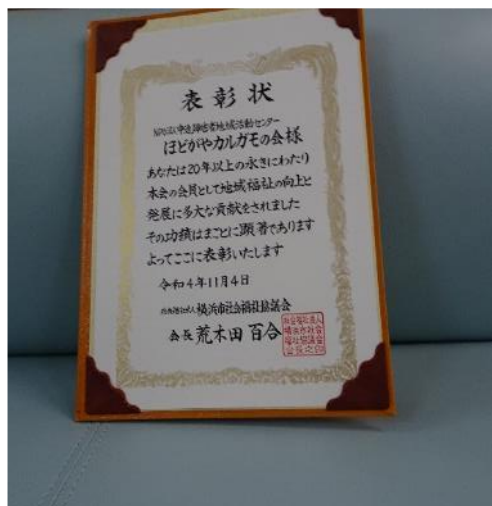 表彰状
NPO法人中途障害者地域活動センター
ほどがやカルガモの会様
あなたは20年以上の永きにわたり
本会の会員として地域福祉の向上と
発展に多大な貢献をされました
その功績はまことに顕著であります
よってここに表彰いたします
令和4年11月4日
社会福祉法人 横浜市社会福祉協議会
会長 荒木田百合
社会福祉法人
横浜市社会
福祉協議会
会長之印